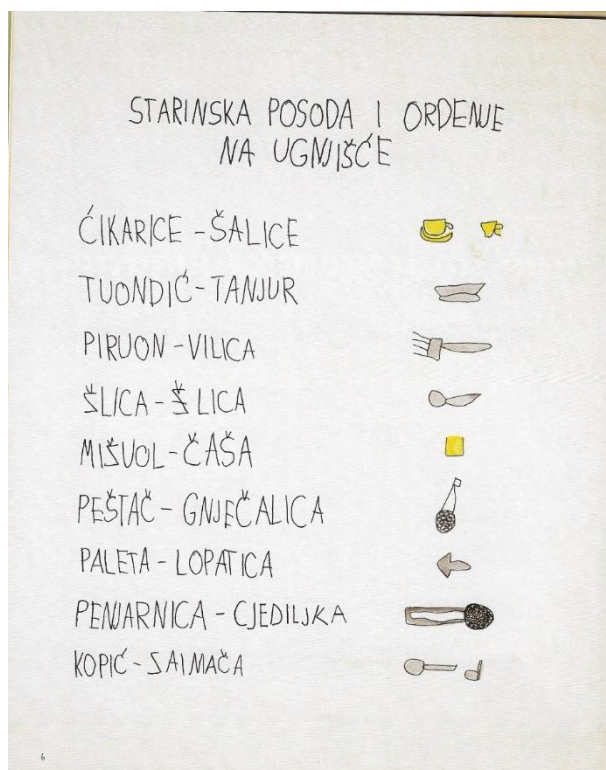 STARINSKA POSODA I ORDENJE
NA UGNJIŠĆE
ĆIKARICE - ŠALICE
TUONDIĆ - TANJUR
PIRUON - VILICA
ŠLICA - ŠLICA
MIŠUOL - ČAŠA
PEŠTAČ - GNJEČALICA
PALETA - LOPATICA
PENJARNICA - CJEDILJKA
KOPIĆ - ZAIMAČA
6